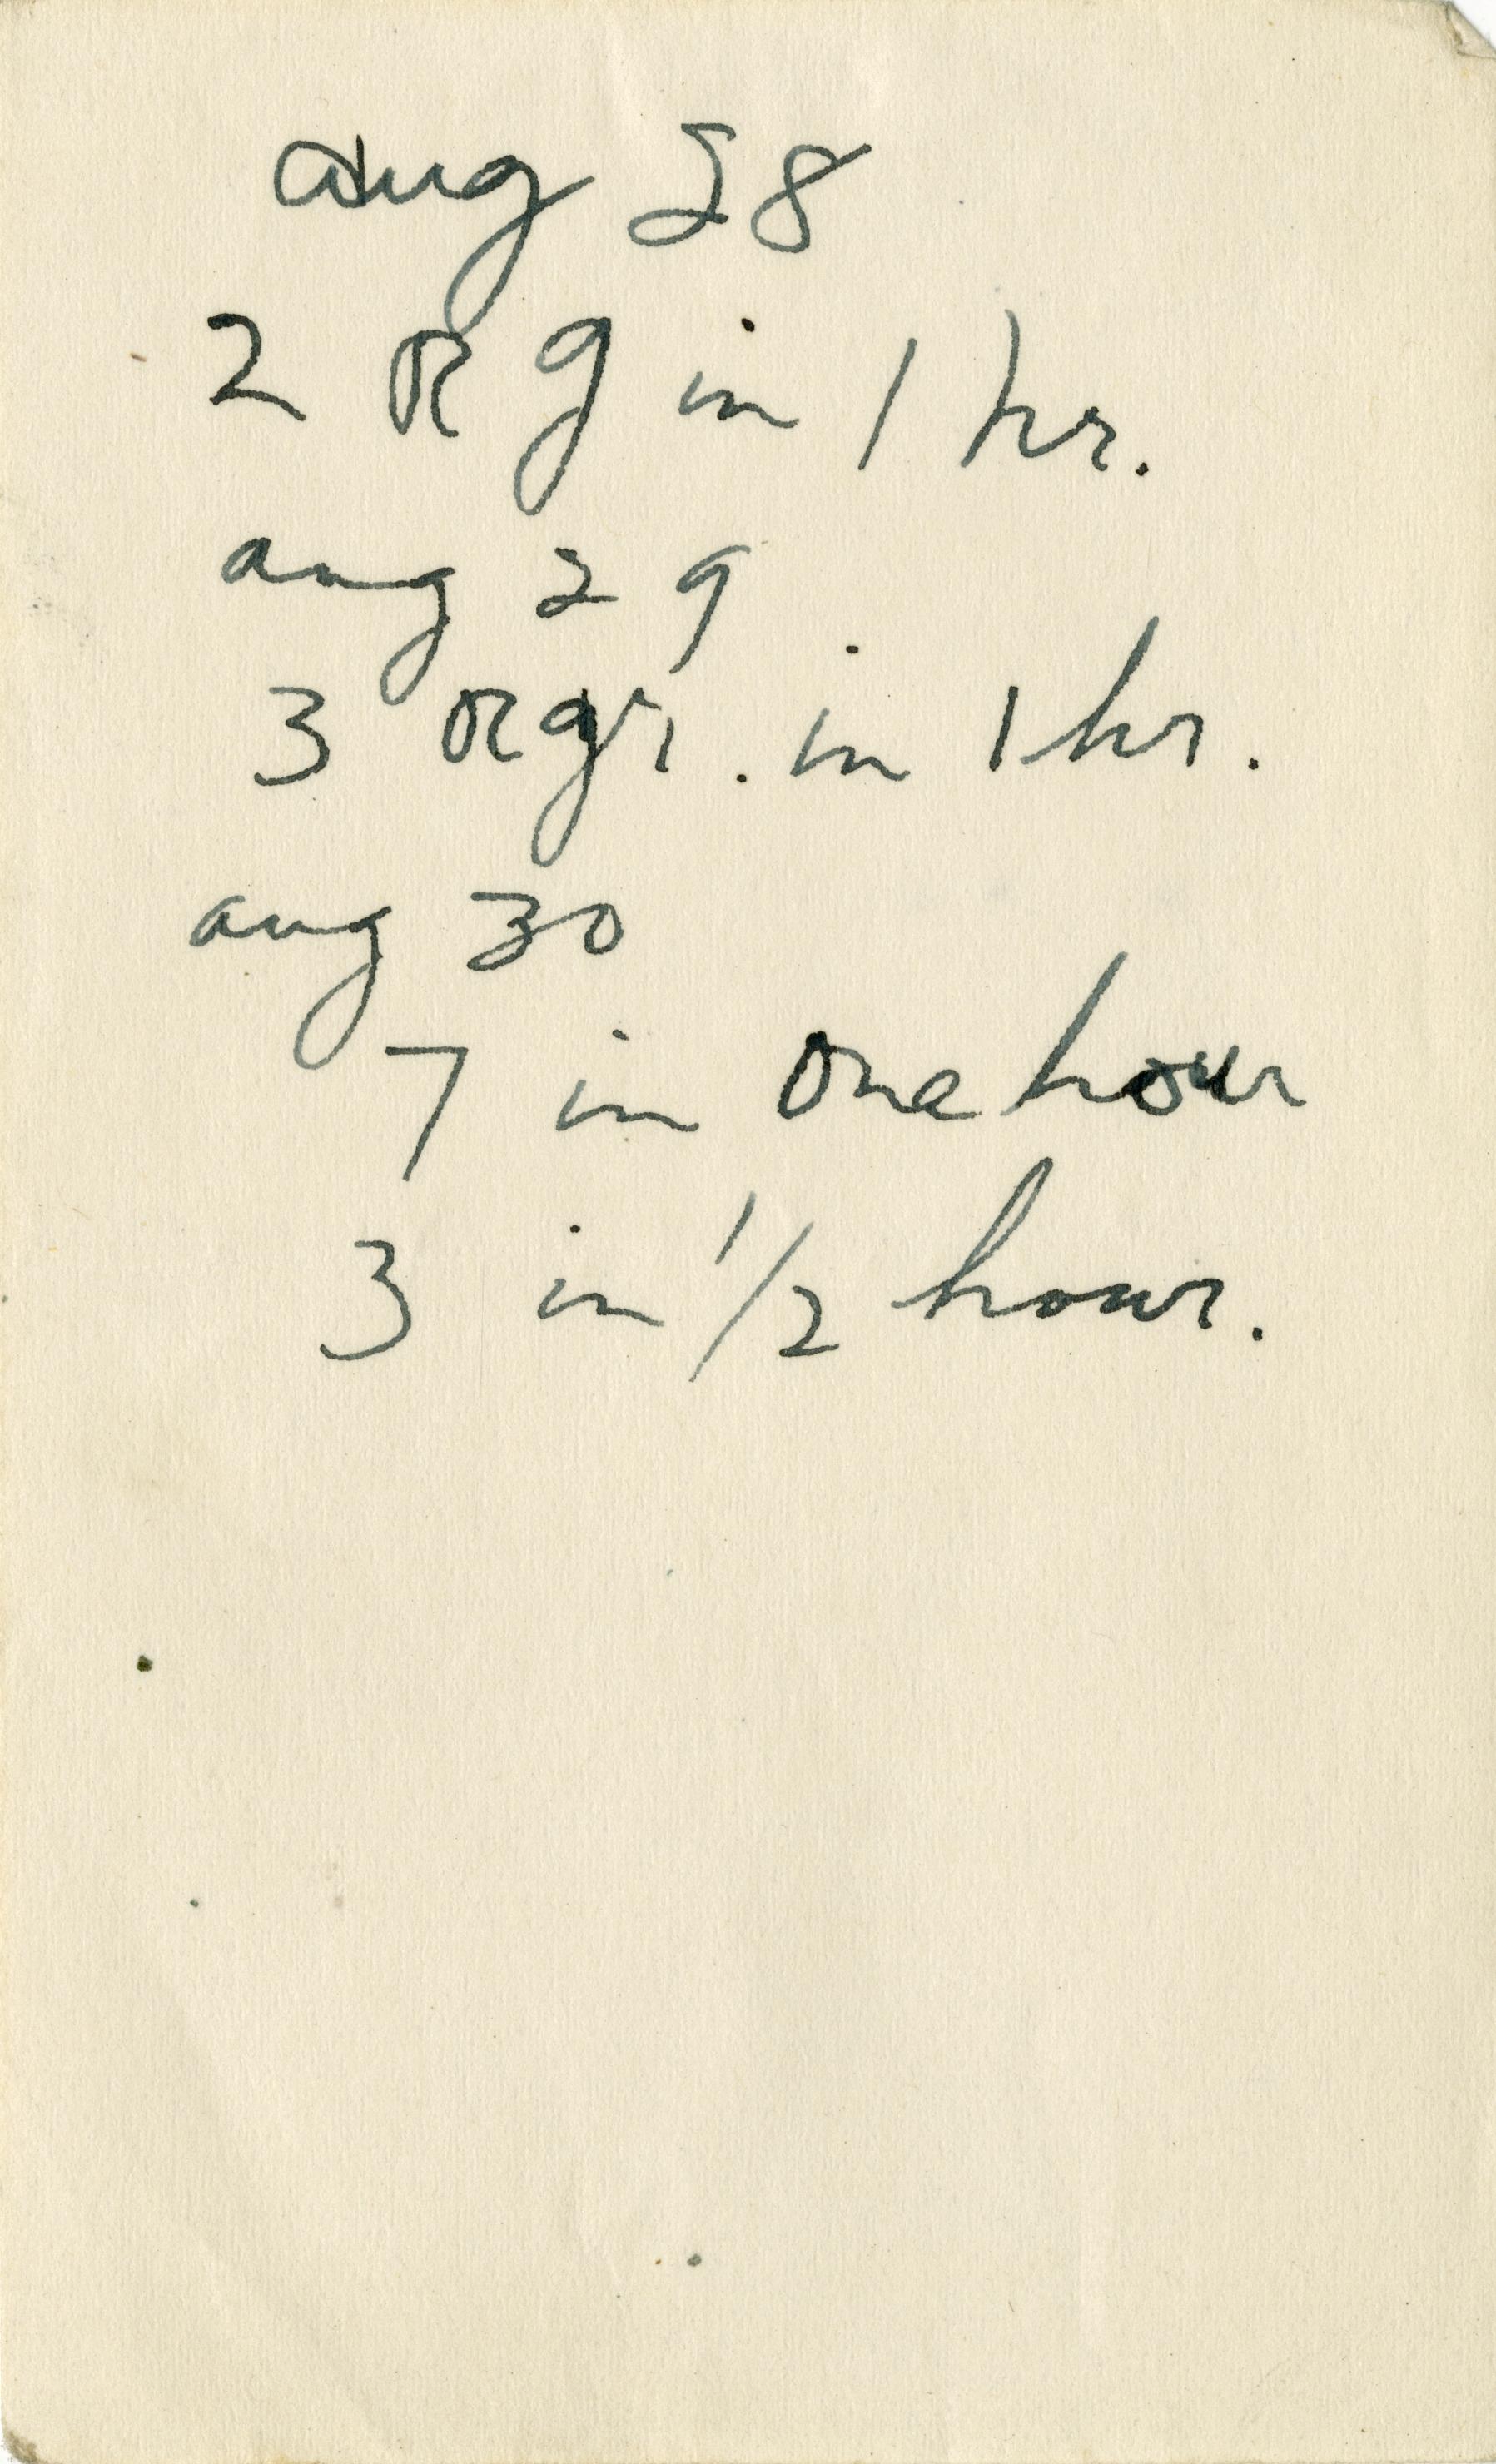 Aug 28
2 R g in 1 hr.
Aug 29
3 Rgr. in 1 hr.
Aug 30
7 in one hour
3 in 1/2 hour.